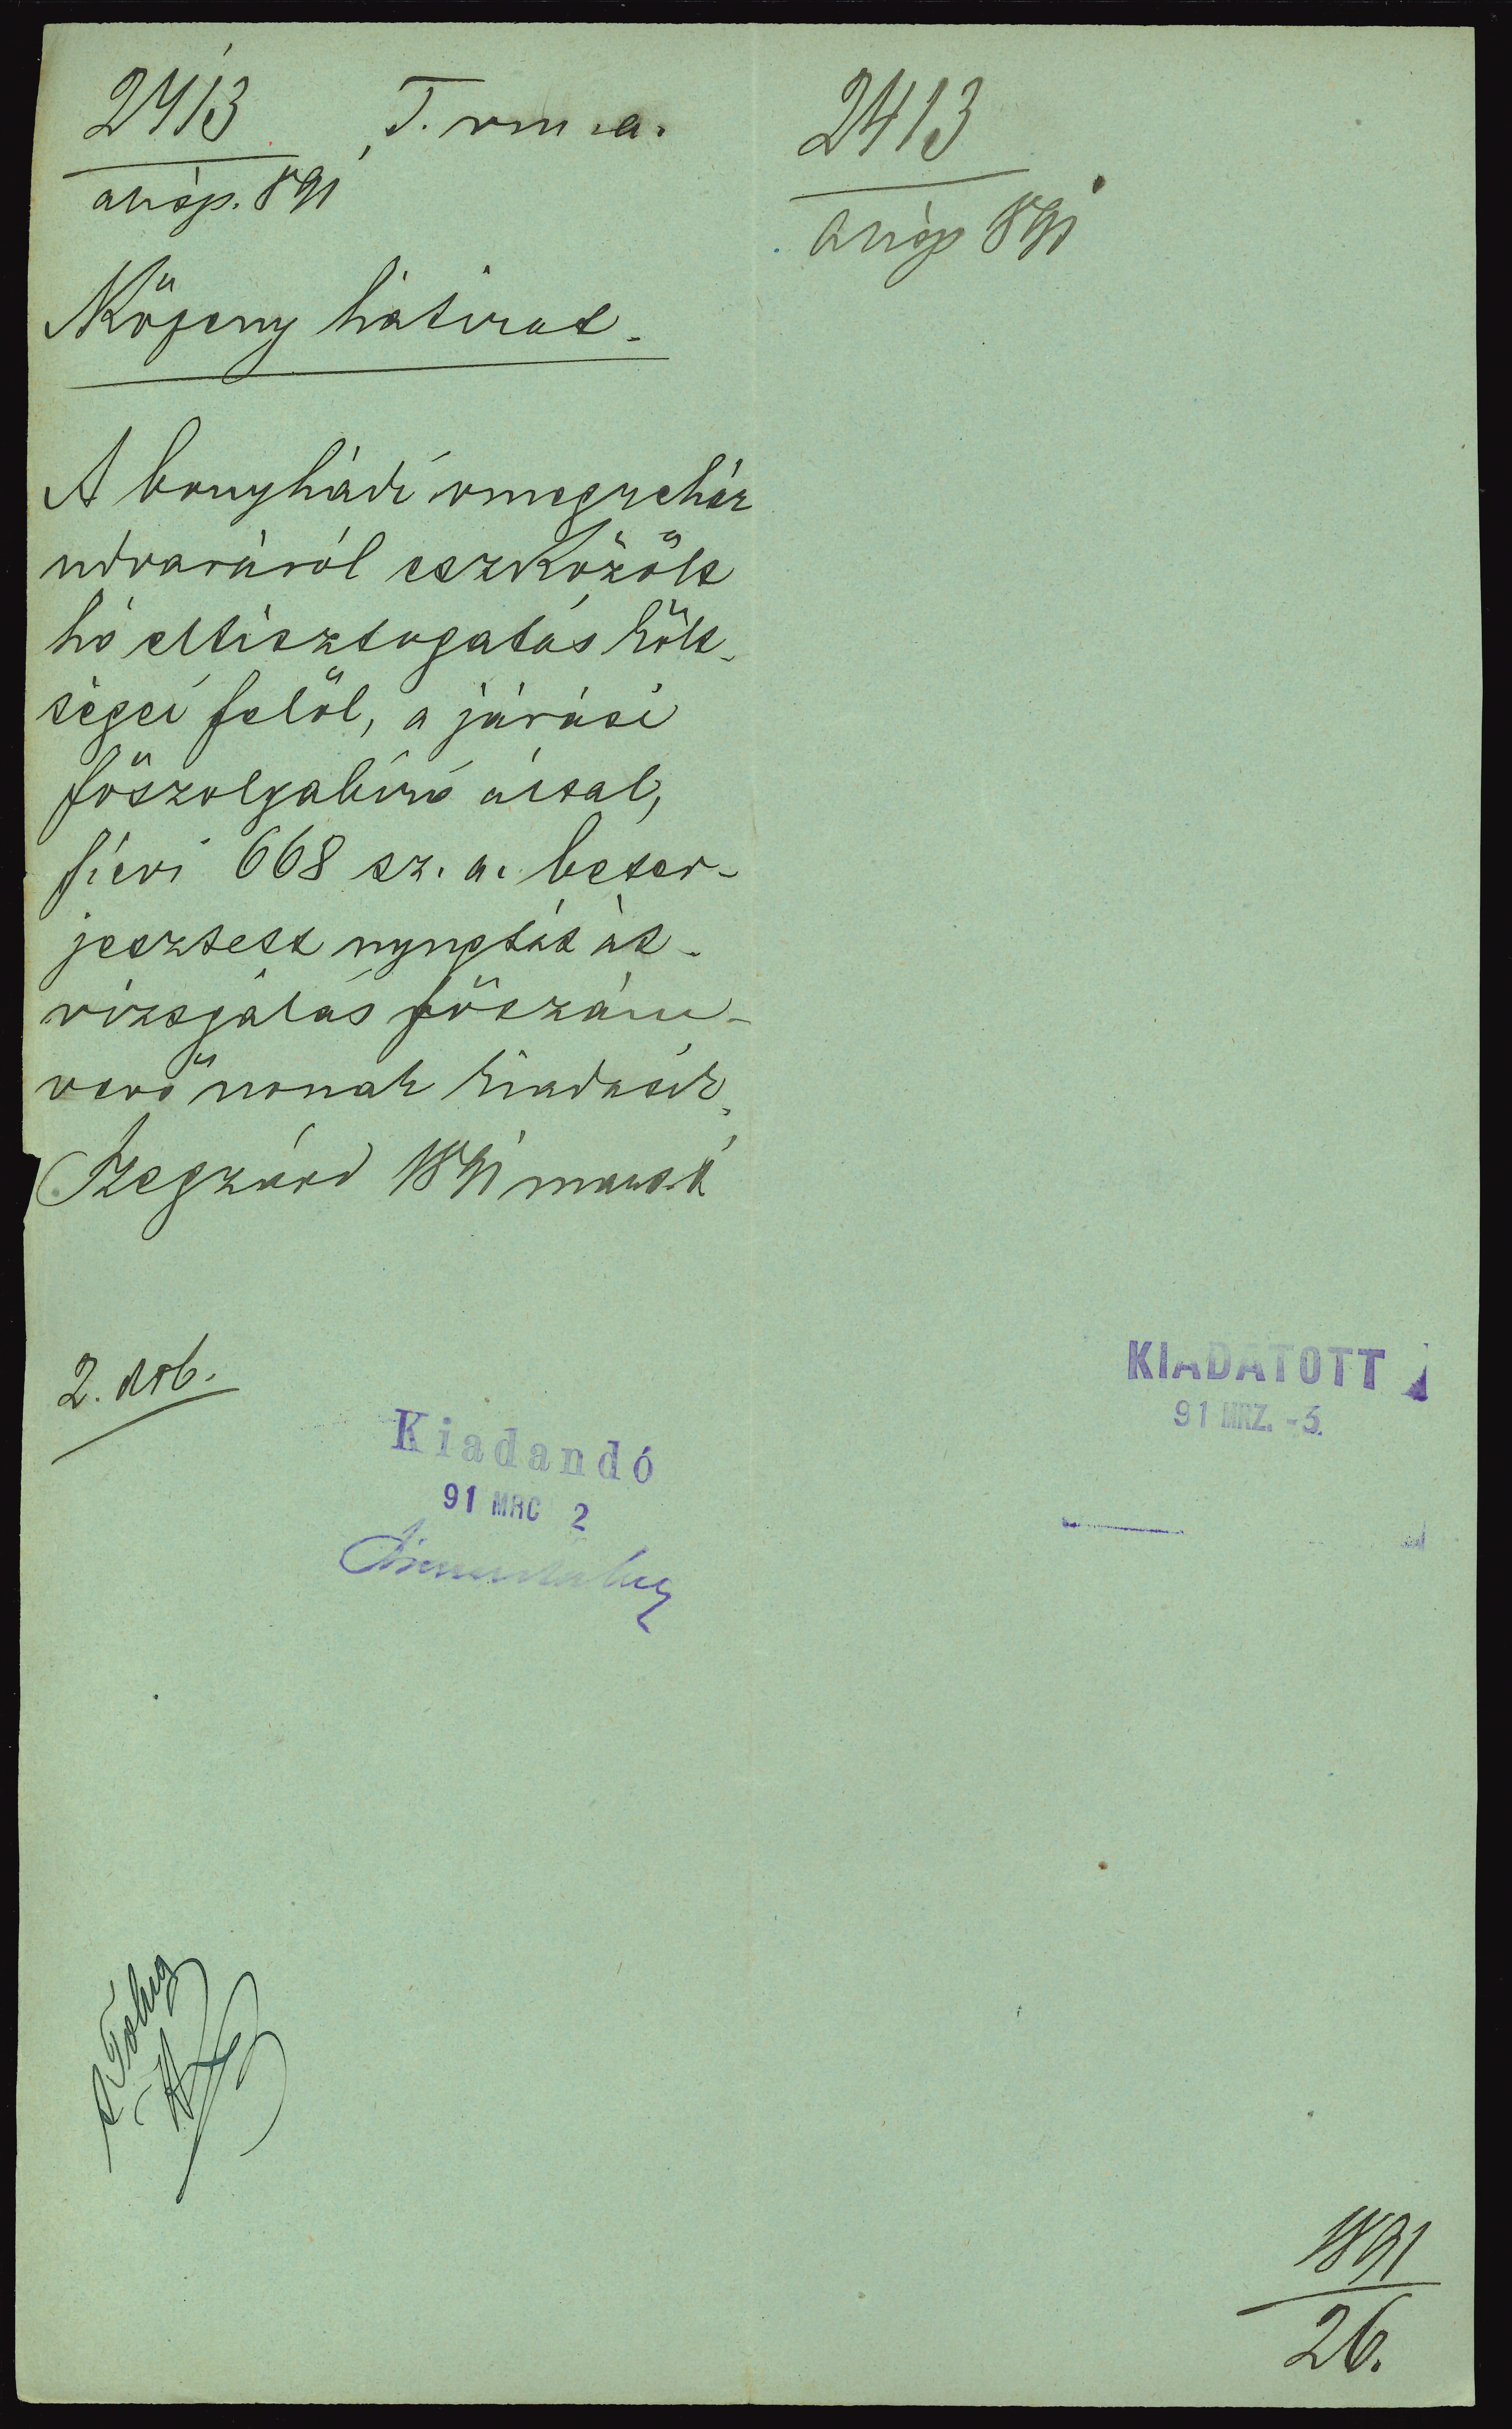 2413 T. vm. a.
alisp. 891
Köpeny hátirat.
A bonyhádi vmegyeház
udvaráról eszközölt
hó eltisztogatás költ-
ségei felől, a járási
főszolgabíró által,
f. évi 668 sz. a. beter-
jesztett nyugtát át-
vizsgálás főszám-
vevő úrnak kiadatik.
Szegzárd 1891 márt. 2
2. drb.
Kiadandó
91 MRC 2
2413
alisp 891
KIADATOTT
91 MRZ. -3.
1891
26.